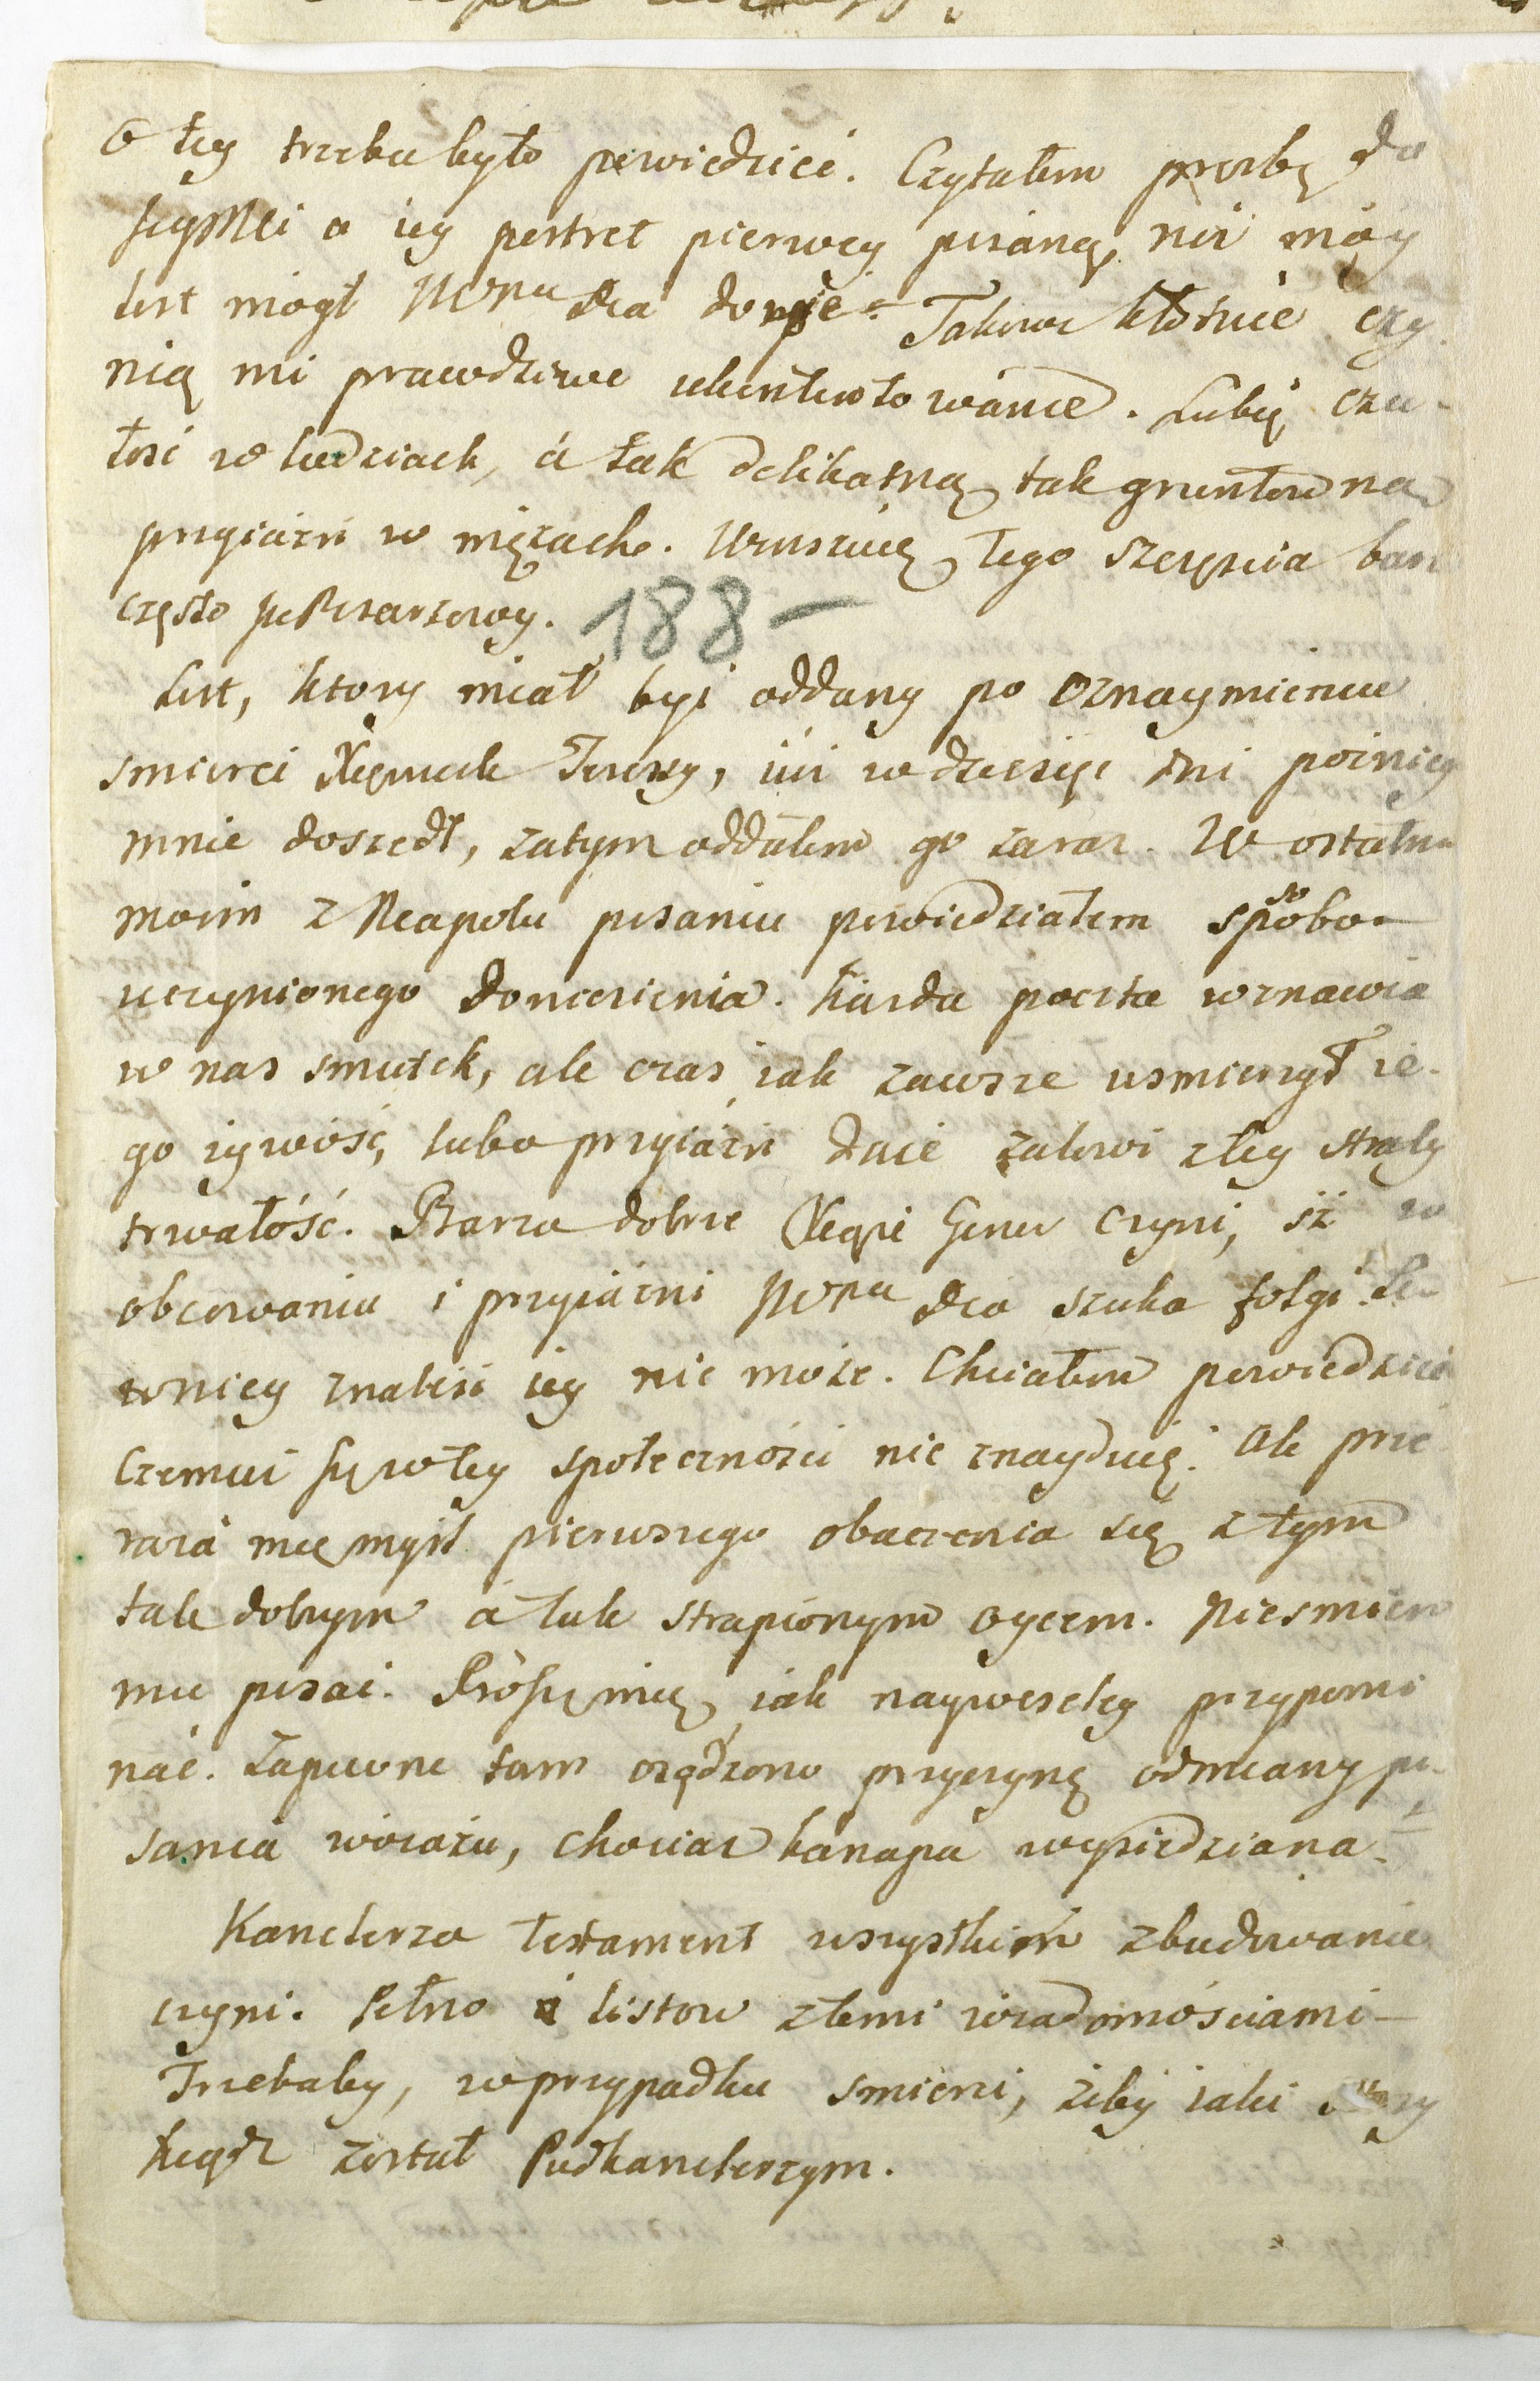 O tey trzeba było powiedzieć. Czytałem prozbę do
JeyMci o iey portret pierwey pisaną, niż móy
list mógł WPana Dza doyść. Takowe kłótnie czy
nią mi prawdziwe ukontentowanie. Lubię czu-
łość w ludziach, á tak delikatną, tak gruntowną
przyiaźń w mężach. Uruszcię tego szczęścia bar
często powtarzaiy. 188 –
List, ktory miał być oddany po oznaymieniu
smierci Xiężniczk Teresy, iuż w dziesięć dni poźniey
mnie doszedł, zatym oddałem go zaraz. W ostatn
moim z Neapolu pisaniu powiedziałem sposób
uczynionego doniesienia. Każda poczta wznawia
w nas smutek, ale czas iak zawsze usmierzył ie-
go żywość, lubo przyiaźń daie żalowi z tey straty
trwałość. Barzo dobrze Xiążę Gener czyni, iż w
obcowaniu i przyiaźni WPana Dza szuka folgi le
w niey znaleść iey nie może. Chciałem powiedzieć
czemuż się w tey społeczności nie znayduię. Ale prze
raża mię myśl pierwszego obaczenia się z tym
tak dobrym á tak strapionym oycem. Nie smiem
mu pisać. Proszę mię iak nayweseley przypomi
nać. Zapewne tam osądzono przyczynę odmiany pi-
sania wirażu, chociaż kanapa wysiedziana.
Kanclerza testament wszystkim zbudowanie
czyni. Pełno listow z temi wiadomościami –
Trzebaby, w przypadku smierci, żeby iaki
Xiądz został Podkanclerzym.